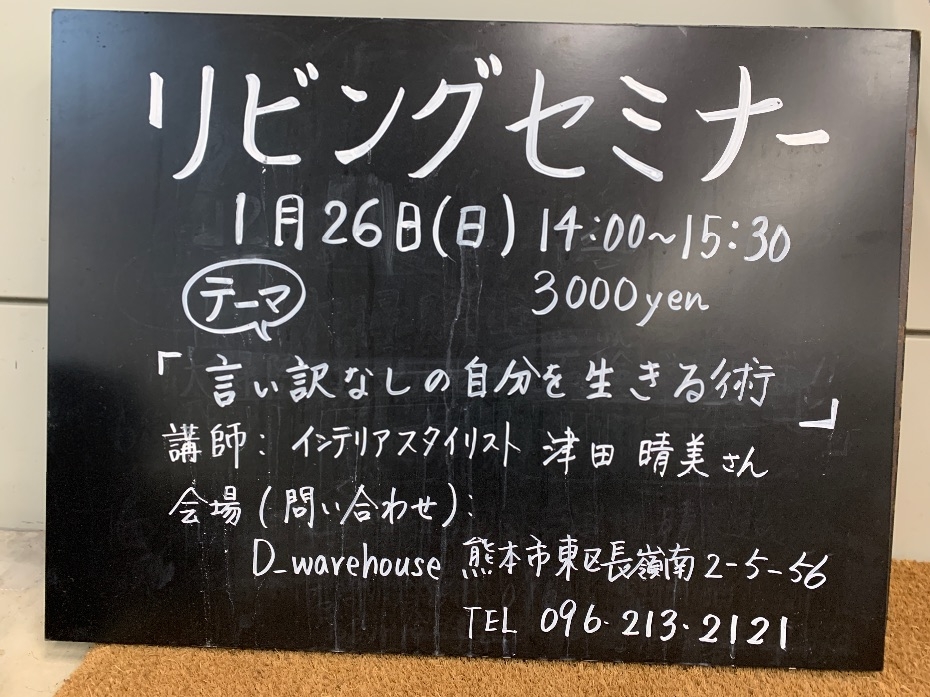 リビングセミナー
1月26日(日) 14:00~15:30
テーマ 3000yen
「言い訳なしの自分を生きる術」
講師: インテリアスタイリスト 津田 晴美さん
会場(問い合わせ):
D_warehouse 熊本市東区長嶺南2-5-56
TEL 096-213-2121